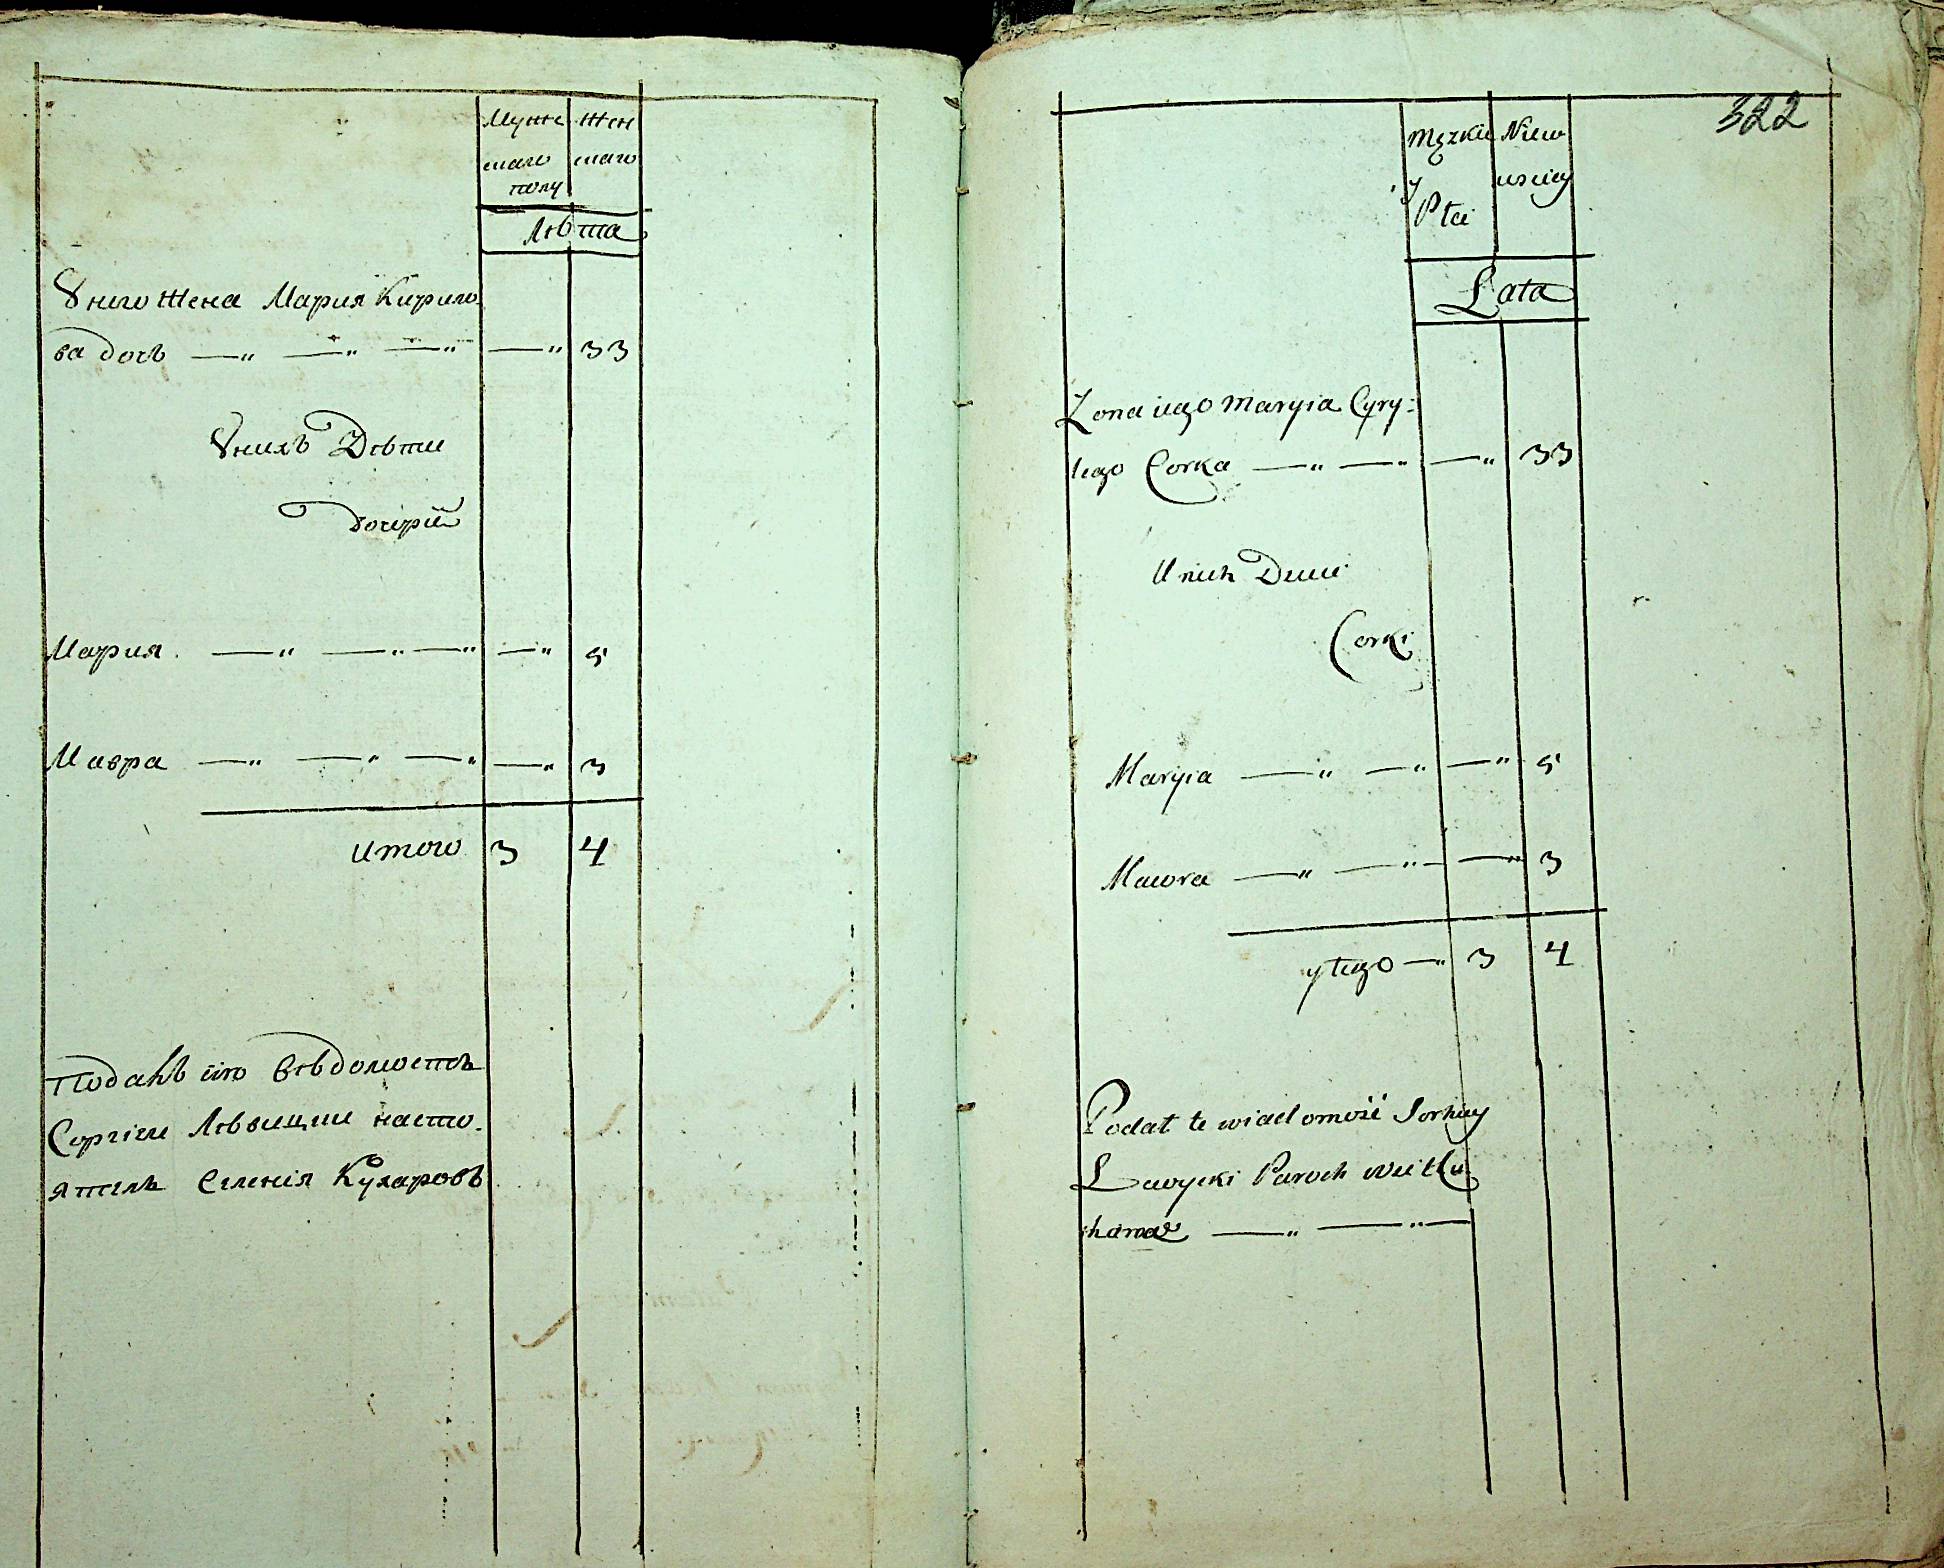 Муже Жен
скаго скаго
полу
Лѣта
Ѹнего Жена Мария Кирило
ва дочь — — — — 33
Ѹнихъ Дѣти
Дочерїи
Мария — — — — 5
Мавра — — — — 3
итого 3 4
Подалъ сїю вѣдомость
Сергїеи Лѣвицкии насто
ятель Селенїя Кухаровъ
322
Męzkie Niew
y
Płci
Lata
Zona iego Maryia Cyry:
lego Corka — — — 33
U nich Dzieci
Corki
Maryia — — — 5
Mawra — — — 3
y tego — 3 4
Podał te wiadomość Serhiey
Lewycki Paroch